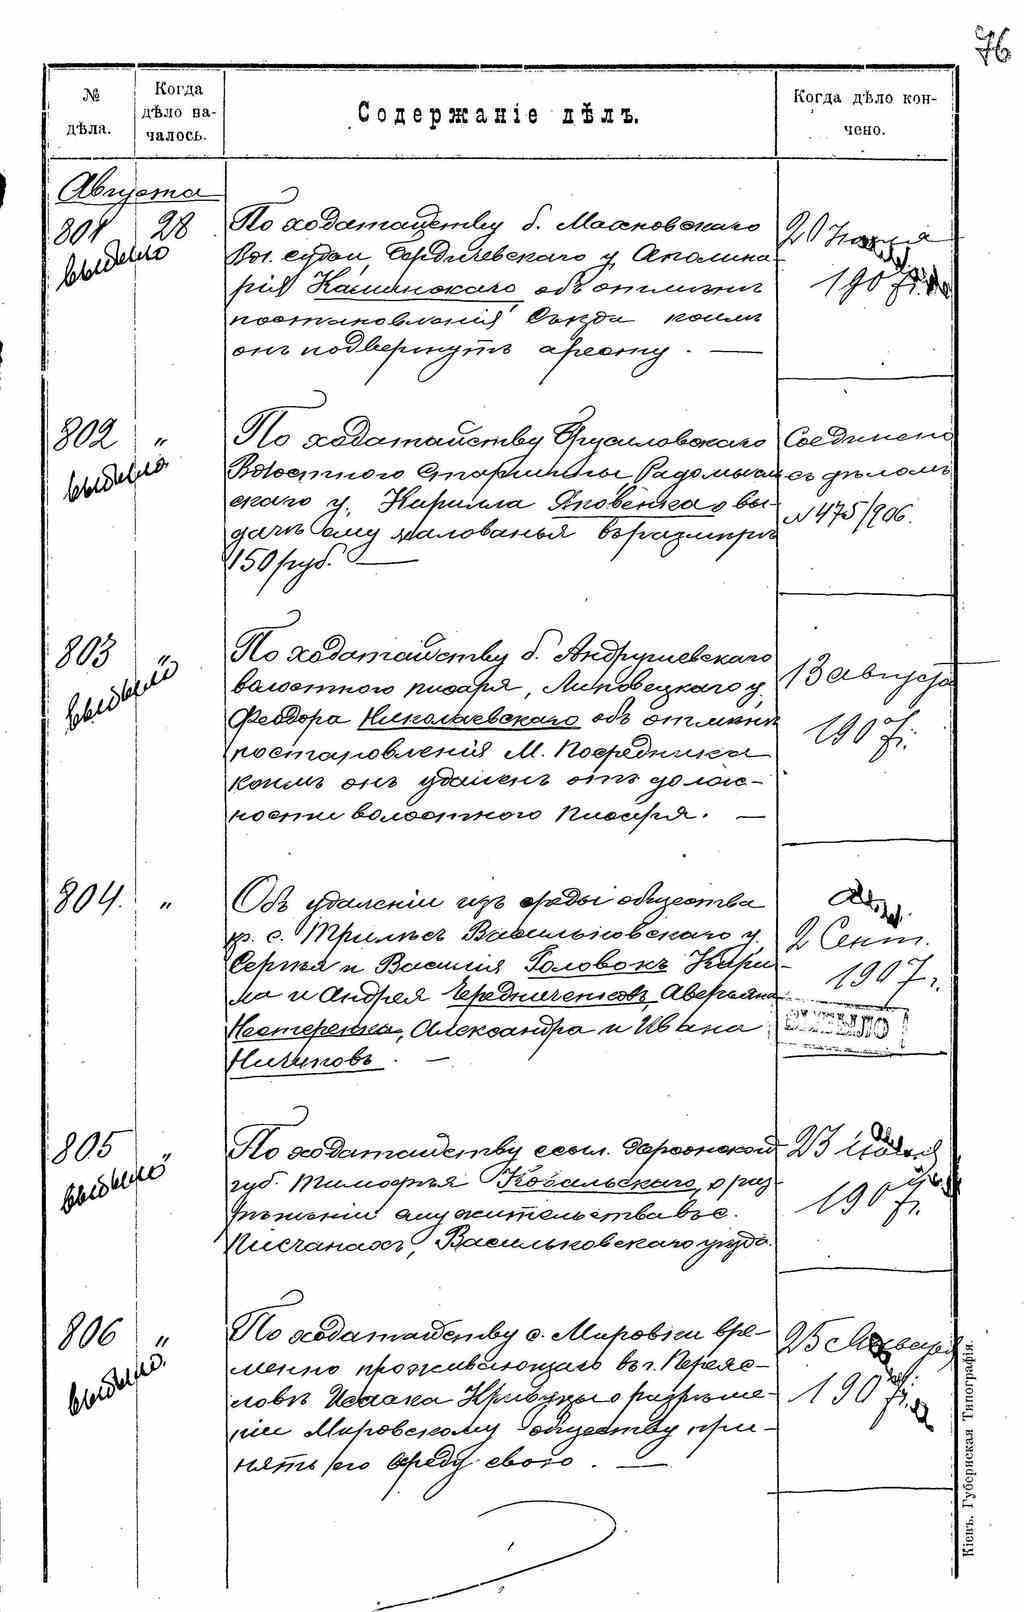 76
№ дѣла.
Когда дѣло началось.
Содержаніе дѣлъ.
Когда дѣло кончено.
Августа
801 28
выбыло
По ходатайству б. Махновскаго
Вол. судьи, Бердичевскаго у. Аполина-
рія Каминскаго объ отмѣнѣ
постановленія Съѣзда коимъ
онъ подвергнутъ аресту. —
20
1907 г.
802 "
выбыло
По ходатайству Брусиловскаго
Волостного Старшины, Радомысль-
скаго у. Кирилла Яковенка о вы-
дачѣ ему жалованья въ размѣрѣ
150 руб. —
Соединено
съ дѣломъ
№ 475/906.
803 "
выбыло
По ходатайству б. Андрушевскаго
волостного писаря, Липовецкаго у.
Феодора Николаевскаго объ отмѣнѣ
постановленія М. Посредника
коимъ онъ удаленъ отъ долж-
ности волостного писаря. —
13 августа
1907 г.
804. "
Объ удаленіи изъ среды общества
кр. с. Трилѣсъ Васильковскаго у.
Сергѣя и Василія Головокъ Кири-
ла и Андрея Чередниченковъ, Аверьяна
Нестеренка, Александра и Ивана
Ничиповъ. —
2 Сент.
1907 г.
ВЫБЫЛО
805 "
выбыло
По ходатайству ссыл. Херсонской
губ. Тимофѣя Ковальскаго, о раз-
рѣшеніи ему жительства въ с.
Писчанахъ, Васильковскаго уѣзда.
23
1907 г.
806 "
выбыло.
По ходатайству с. Мировки вре-
менно проживающаго въ г. Переяс-
ловѣ Исаака о разрѣше-
ніи Мировскому обществу при-
нять его среду свою. —
25
1907 г.
Кіевъ. Губернская Типографія.